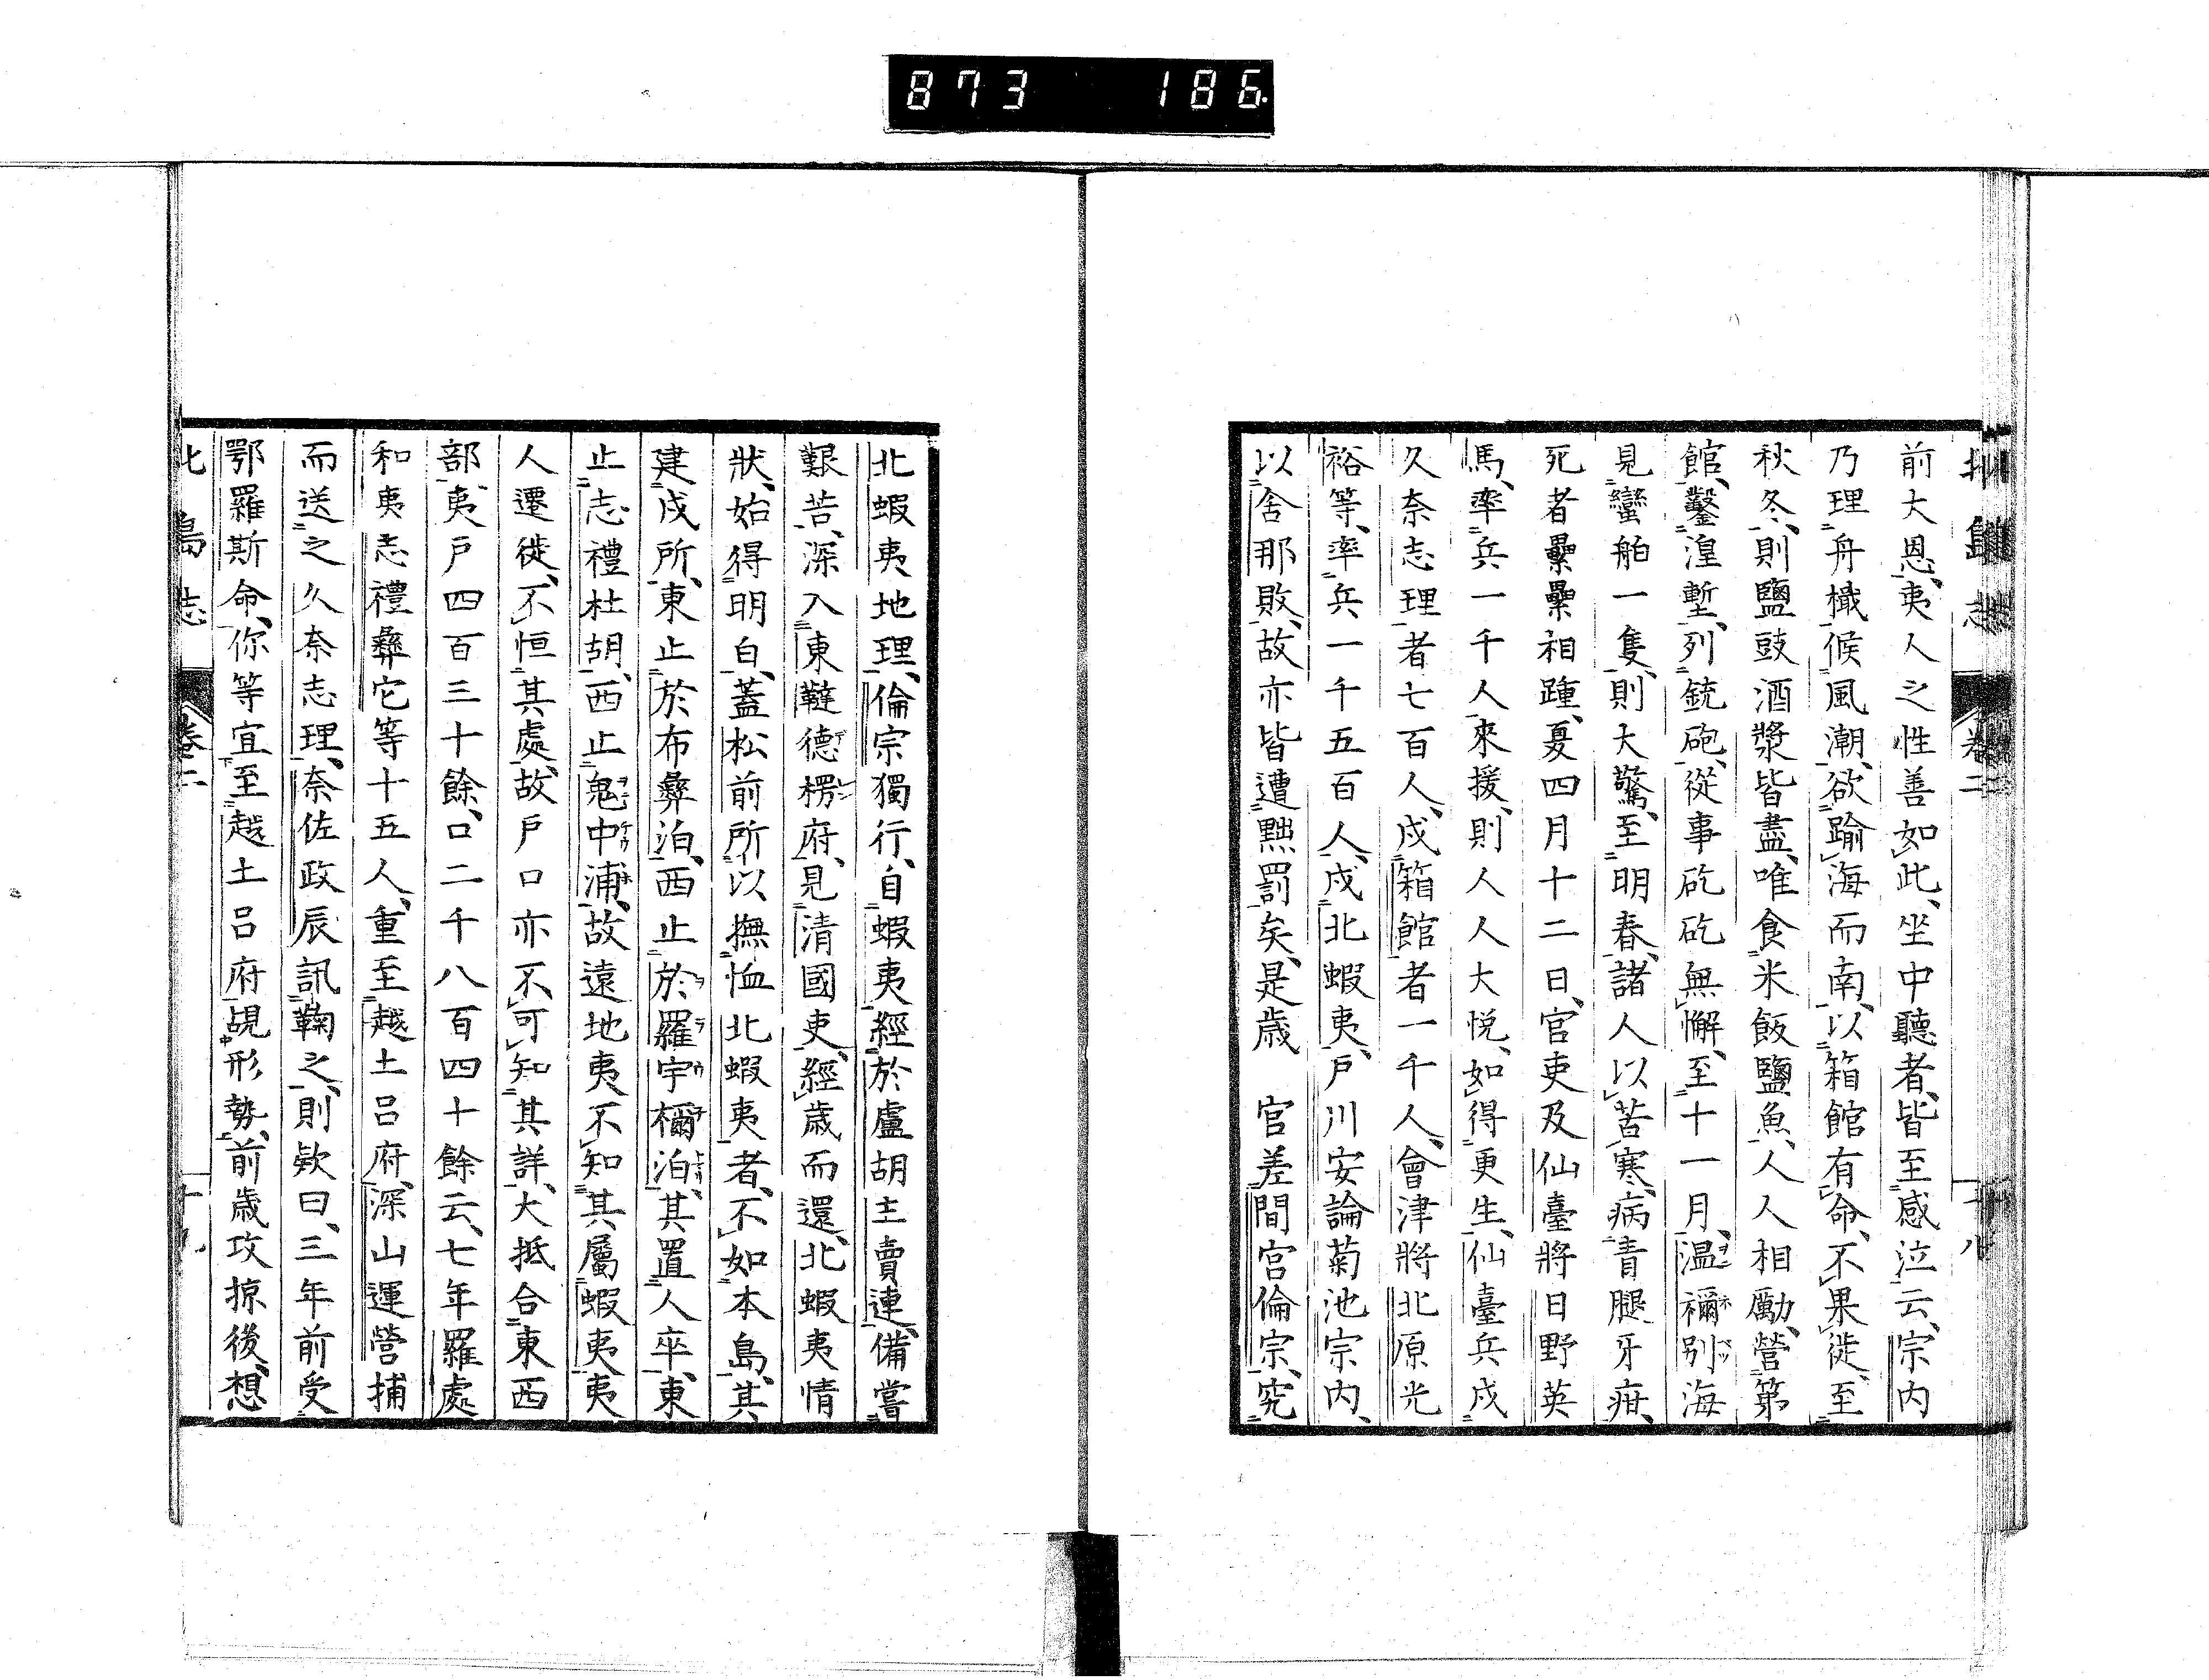 873 186
北島志 卷二 十八
前大恩、夷人之性善如此、坐中聽者、皆至感泣云、宗内
乃理舟檝候風潮、欲踰海而南、以箱館有命、不果徙、至
秋冬、則鹽豉酒漿皆盡、唯食米飯鹽魚、人人相勵、營第
館、鑿湟塹、列銃砲、從事矻矻無懈、至十一月、温禰別海
見蠻舶一隻、則大驚、至明春、諸人以苦寒、病青腿牙疳、
死者纍纍相踵、夏四月十二日、官吏及仙臺將日野英
馬、率兵一千人來援、則人人大悦、如得更生、仙臺兵戍
久奈志理者七百人、戍箱館者一千人、會津將北原光
裕等、率兵一千五百人、戍北蝦夷、戸川安論菊池宗内、
以舍那敗、故亦皆遭黜罰矣、是歳 官差間宮倫宗、究
北蝦夷地理、倫宗獨行、自蝦夷經於盧胡主賣連、備嘗
艱苦、深入東韃德楞府、見清國吏、經歳而還、北蝦夷情
狀、始得明白、蓋松前所以撫恤北蝦夷者、不如本島、其
建戍所、東止於布彝泊、西止於羅宇檷泊、其置人卒、東
止志禮杜胡、西止魂中浦、故遠地夷不知其屬蝦夷、夷
人遷徙、不恒其處、故戸口亦不可知其詳、大抵合東西
部、夷戸四百三十餘、口二千八百四十餘云、七年羅處
和夷志禮彝它等十五人、重至越土呂府、深山運營捕
而送之久奈志理、奈佐政辰訊鞠之、則欵曰、三年前受
鄂羅斯命、你等宜至越土呂府覘形勢、前歳攻掠後、想
北島志 卷二 十九